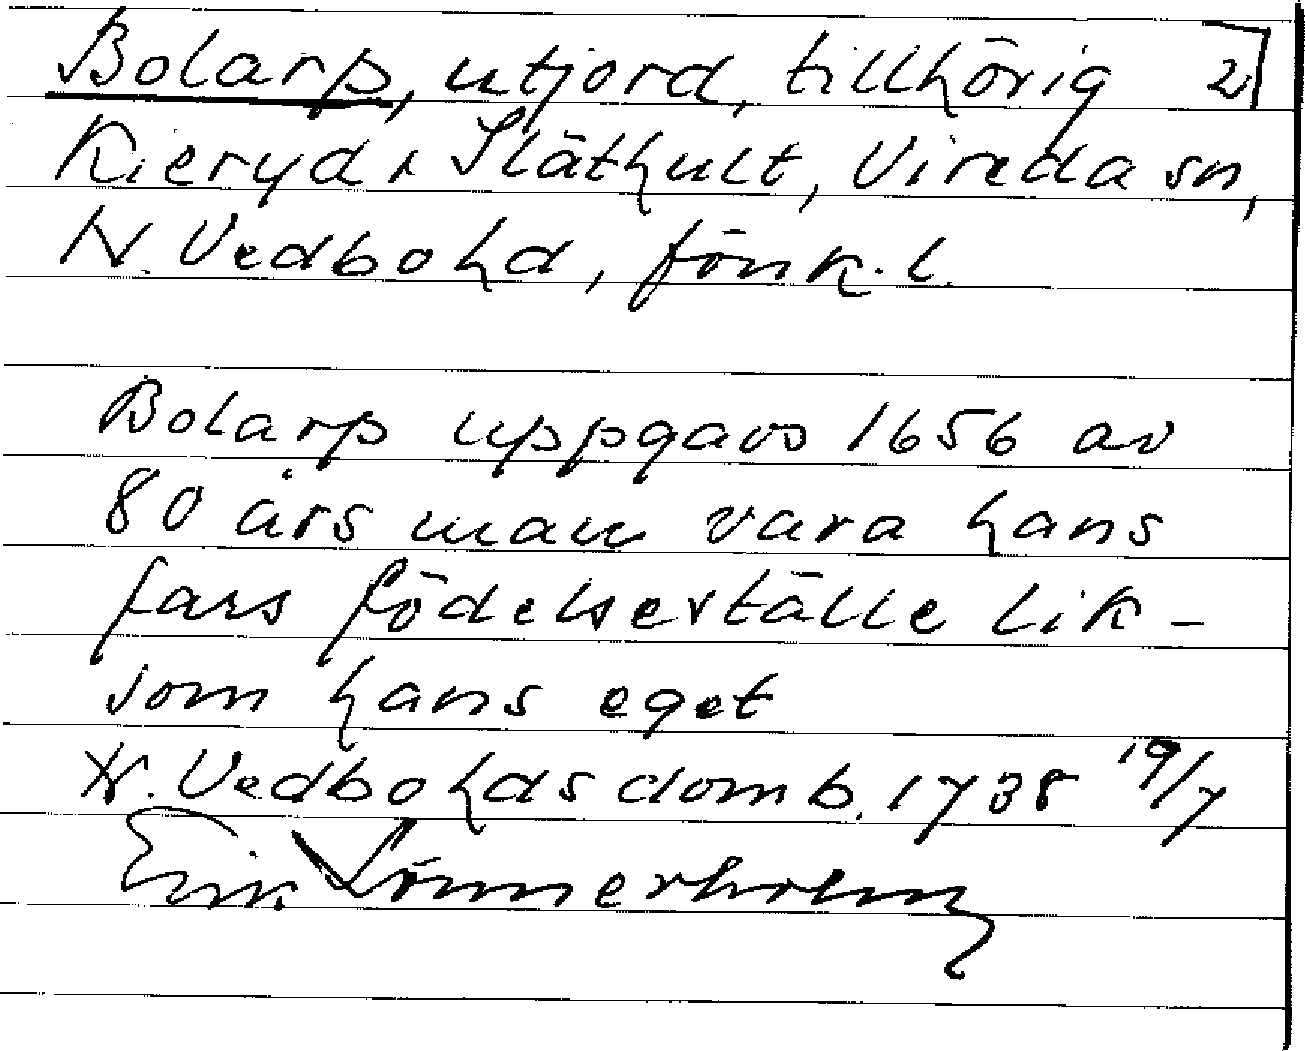 Bolarp, utjord, tillhörig 2
Kieryd & Släthult, Vireda sn,
N. Vedbohd, Jönk. l.
Bolarp uppgavs 1656 av
80 års man vara hans
fars födelseställe lik-
som hans eget
N. Vedbohds domb. 1738 19/7
Erik Lönnerholm